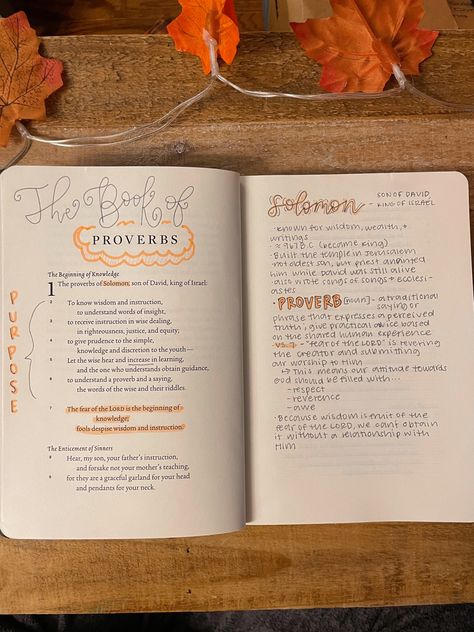 The Book of
PROVERBS
The Beginning of Knowledge
1 The proverbs of Solomon, son of David, king of Israel:
2 To know wisdom and instruction,
to understand words of insight,
3 to receive instruction in wise dealing,
in righteousness, justice, and equity;
4 to give prudence to the simple,
knowledge and discretion to the youth—
5 Let the wise hear and increase in learning,
and the one who understands obtain guidance,
6 to understand a proverb and a saying,
the words of the wise and their riddles.
7 The fear of the LORD is the beginning of
knowledge;
fools despise wisdom and instruction.
The Enticement of Sinners
8 Hear, my son, your father's instruction,
and forsake not your mother's teaching,
9 for they are a graceful garland for your head
and pendants for your neck.
PURPOSE
Solomon - SON OF DAVID,
KING OF ISRAEL
· known for wisdom, wealth, +
writings
· ≈ 967 B.C. (became king)
· Built the temple in Jerusalem
· not oldest son, but priest anointed
him while david was still alive
· also wrote songs of songs + ecclesi-
astes
· PROVERB [noun] - a traditional
saying or
phrase that expresses a perceived
truth; give practical advice based
on the shared human experience
vs. 7 - "fear of the LORD" is revering
the creator and submitting
our worship to Him
↳ This means our attitude towards
God should be filled with...
- respect
- reverence
- awe
· Because wisdom is fruit of the
fear of the LORD, we can't obtain
it without a relationship with
Him